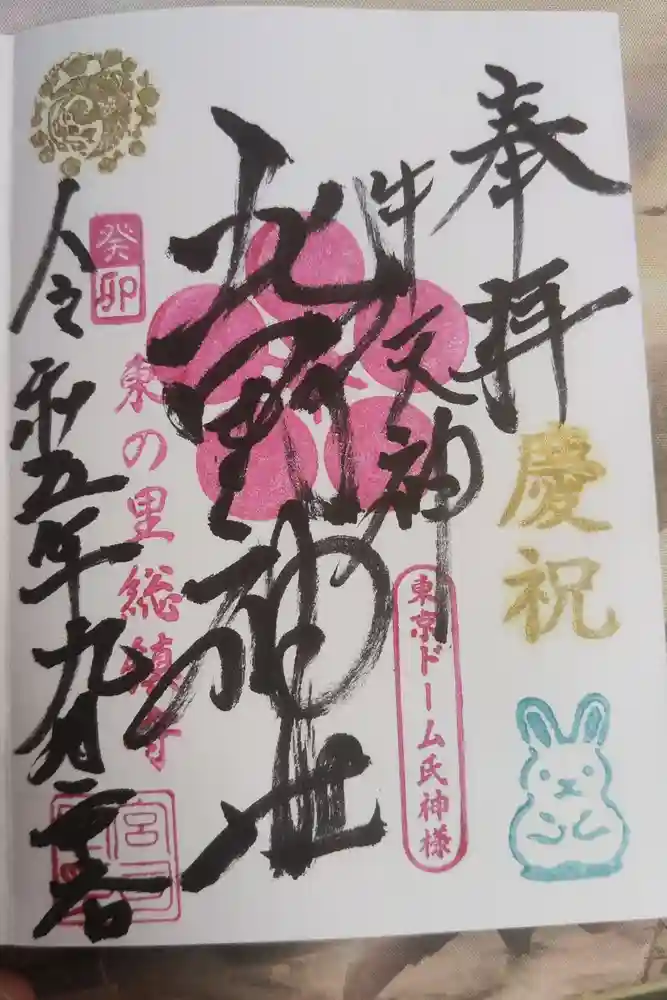 奉拝
慶祝
牛天神
東京ドーム氏神様
北野神社
東の里総鎮守
癸卯
令和五年九月